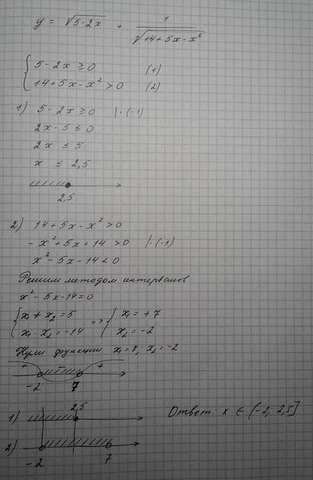 y = √5-2x + 1/√14+5x-x²
{ 5-2x ≥ 0 (1)
14+5x-x² > 0 (2)
1) 5-2x ≥ 0 |·(-1)
2x-5 ≤ 0
2x ≤ 5
x ≤ 2,5
2,5
2) 14+5x-x² > 0
-x²+5x+14 > 0 |·(-1)
x²-5x-14 < 0
Решим методом интервалов
x²-5x-14=0
{ x₁+x₂=5 => { x₁=+7
x₁·x₂=-14 x₂=-2
Нули функции x₁=7, x₂=-2
+ - +
-2 7
1) 2,5
Ответ: x ∈ (-2; 2,5]
2) -2 7